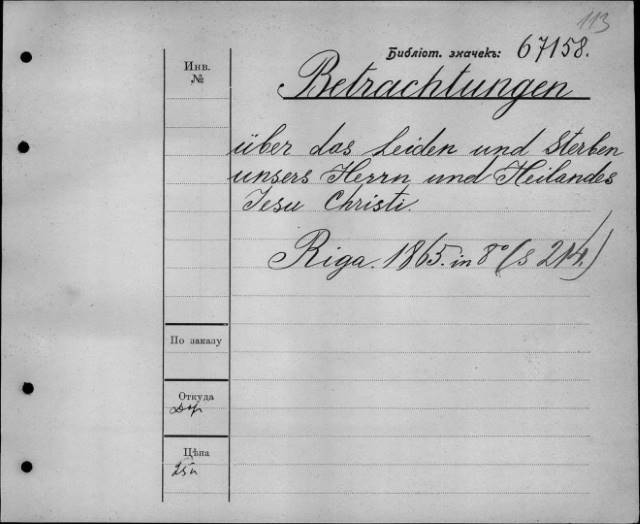 113
Библіот. значекъ: 67158.
Инв.
№
Betrachtungen
über das Leiden und Sterben
unsers Herrn und Heilandes
Jesu Christi.
Riga. 1865. in 8° (S 214.)
По заказу
Откуда
Цѣна